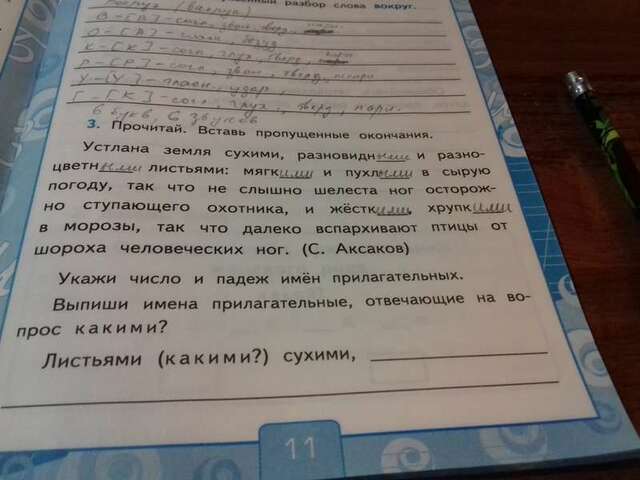 разбор слова вокруг.
О - [А] - гласн, безуд
К - [К] - согл, глух, тверд, парн
Р - [Р] - согл, звон, тверд, непарн
У - [У] - гласн, удар,
Г - [К] - согл., глух., тверд, парн.
6 букв, 6 звуков
3. Прочитай. Вставь пропущенные окончания.
Устлана земля сухими, разновидными и разно-
цветными листьями: мягкими и пухлыми в сырую
погоду, так что не слышно шелеста ног осторож-
но ступающего охотника, и жёсткими, хрупкими
в морозы, так что далеко вспархивают птицы от
шороха человеческих ног. (С. Аксаков)
Укажи число и падеж имён прилагательных.
Выпиши имена прилагательные, отвечающие на во-
прос какими?
Листьями (какими?) сухими,
11